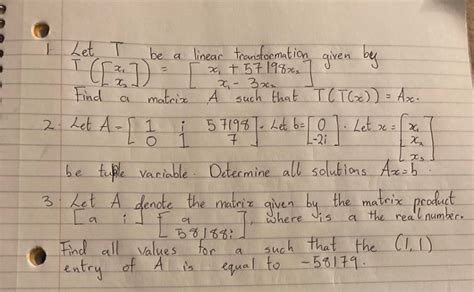 1. Let T be a linear transformation given by
T([x₁ x₂]) = [x₁ + 57198x₂ x₁ - 3x₂]
Find a matrix A such that T(T(x)) = Ax.
2. Let A = [1 i 57198 0 1 7]. Let b = [0 -2i]. Let x = [x₁ x₂ x₃]
be tuple variable. Determine all solutions Ax = b.
3. Let A denote the matrix given by the matrix product
[a i] [a 58188i], where is a the real number.
Find all values for a such that the (1,1)
entry of A is equal to -58179.